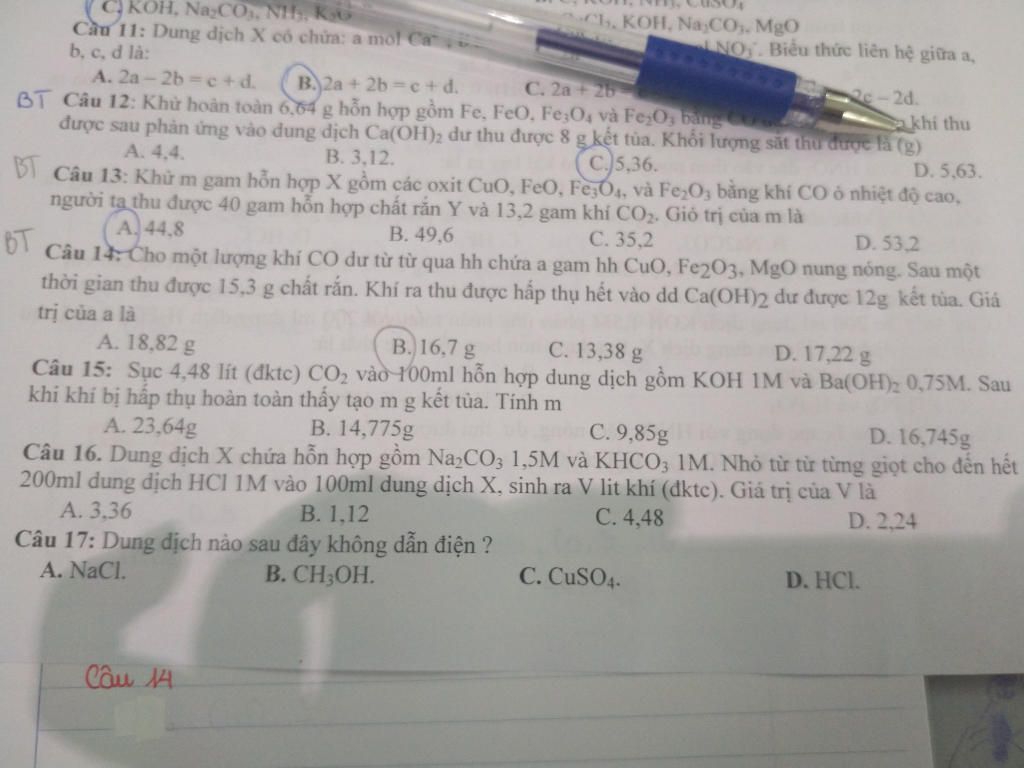 C. KOH, Na₂CO₃, NH₃,
CuSO₄
KOH, Na₂CO₃, MgO
Câu 11: Dung dịch X có chứa: a mol
NO₃⁻. Biểu thức liên hệ giữa a,
b, c, d là:
A. 2a – 2b = c + d. B. 2a + 2b = c + d. C. 2a + 2b – 2d.
BT Câu 12: Khử hoàn toàn 6,64 g hỗn hợp gồm Fe, FeO, Fe₃O₄ và Fe₂O₃ bằng CO khí thu
được sau phản ứng vào dung dịch Ca(OH)₂ dư thu được 8 g kết tủa. Khối lượng sắt thu được là (g)
A. 4,4. B. 3,12. C. 5,36. D. 5,63.
BT Câu 13: Khử m gam hỗn hợp X gồm các oxit CuO, FeO, Fe₃O₄, và Fe₂O₃ bằng khí CO ở nhiệt độ cao,
người ta thu được 40 gam hỗn hợp chất rắn Y và 13,2 gam khí CO₂. Giỏ trị của m là
A. 44,8 B. 49,6 C. 35,2 D. 53,2
BT Câu 14: Cho một lượng khí CO dư từ từ qua hh chứa a gam hh CuO, Fe₂O₃, MgO nung nóng. Sau một
thời gian thu được 15,3 g chất rắn. Khí ra thu được hấp thụ hết vào dd Ca(OH)₂ dư được 12g kết tủa. Giá
trị của a là
A. 18,82 g B. 16,7 g C. 13,38 g D. 17,22 g
Câu 15: Sục 4,48 lít (đktc) CO₂ vào 100ml hỗn hợp dung dịch gồm KOH 1M và Ba(OH)₂ 0,75M. Sau
khi khí bị hấp thụ hoàn toàn thấy tạo m g kết tủa. Tính m
A. 23,64g B. 14,775g C. 9,85g D. 16,745g
Câu 16. Dung dịch X chứa hỗn hợp gồm Na₂CO₃ 1,5M và KHCO₃ 1M. Nhỏ từ từ từng giọt cho đến hết
200ml dung dịch HCl 1M vào 100ml dung dịch X, sinh ra V lit khí (đktc). Giá trị của V là
A. 3,36 B. 1,12 C. 4,48 D. 2,24
Câu 17: Dung dịch nào sau đây không dẫn điện ?
A. NaCl. B. CH₃OH. C. CuSO₄. D. HCl.
Câu 14